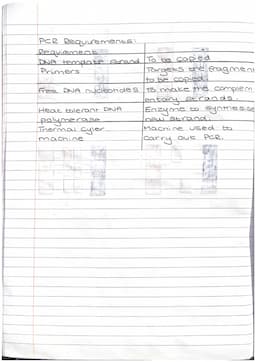 PCR Requirements:
Requirement
DNA template strand To be copied
Primers Targets the fragment
to be copied.
Free DNA nucleotides To make the complem
entary strands.
Heat tolerant DNA Enzyme to synthesise
polymerase new strand.
Thermal Cycler Machine used to
machine carry out PCR.